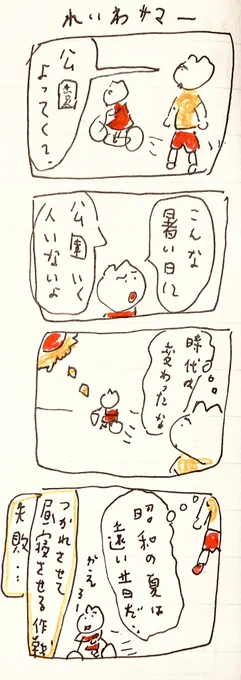 れいわサマー
公園
よってく?
こんな
暑い日に
公園いく
人いないよ
時代は
変わったな
昭和の夏は
遠い昔だ…
かえろー
つかれさせて
昼寝させる作戦
失敗…